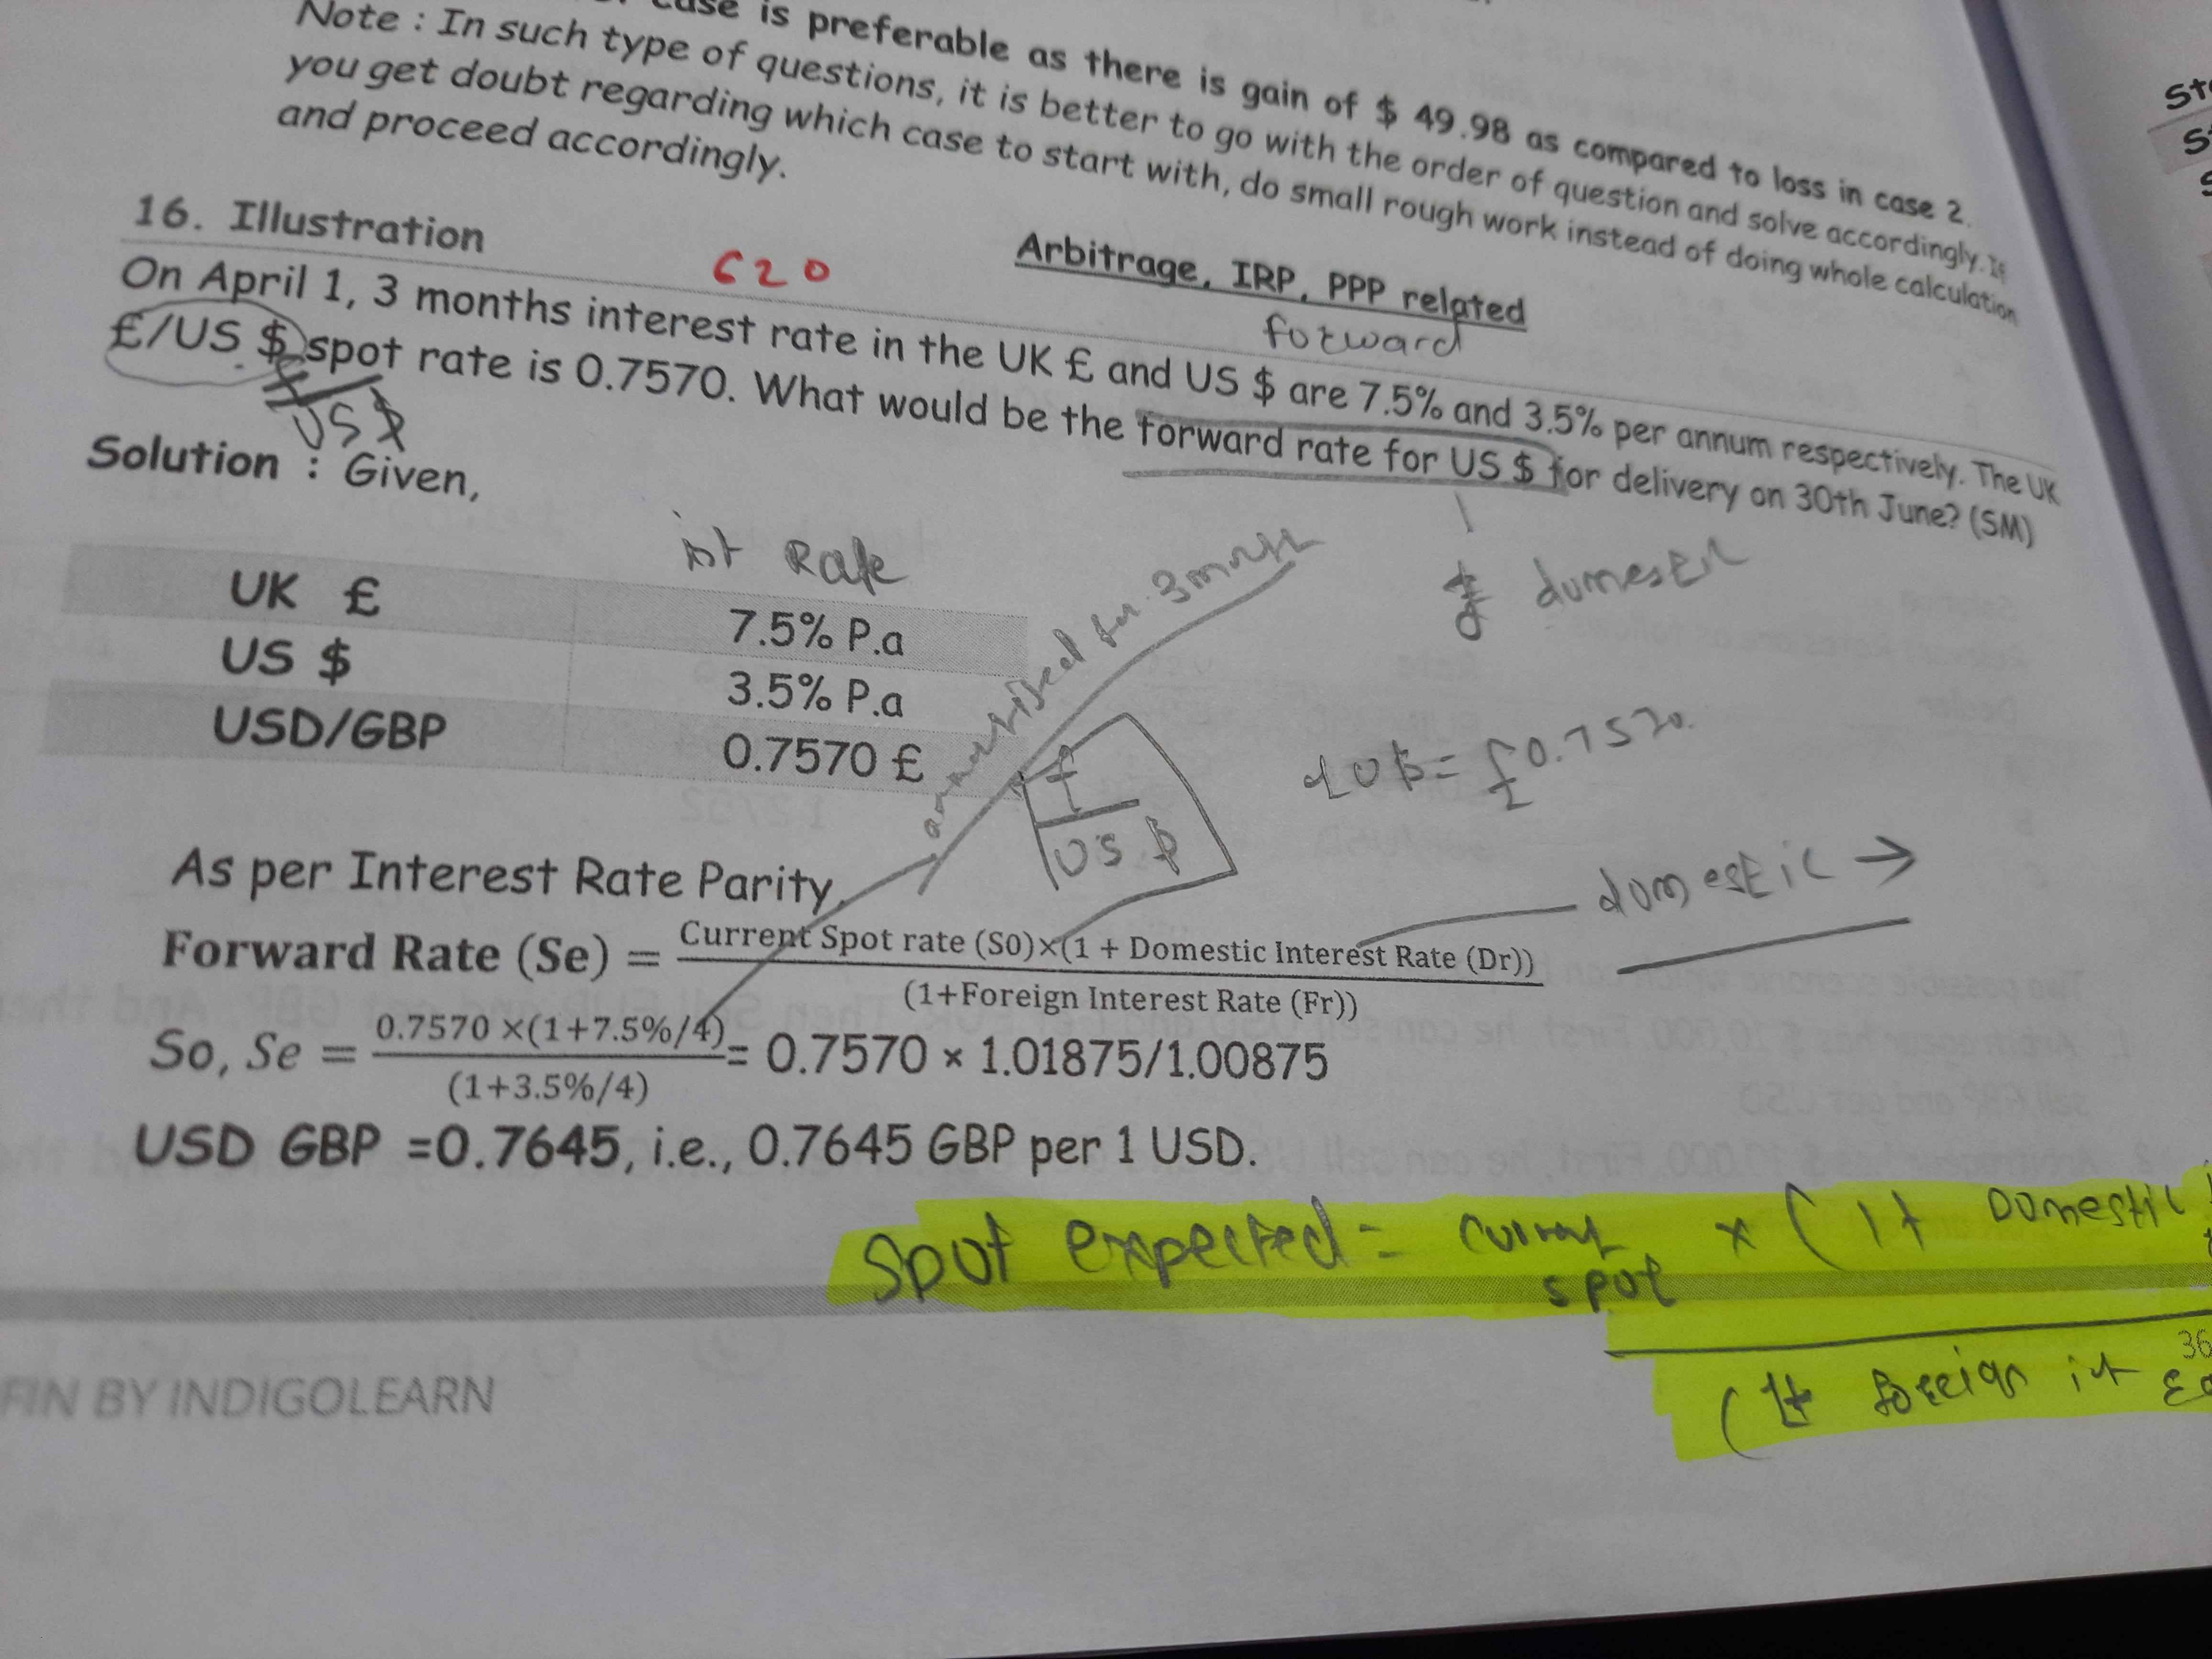 case is preferable as there is gain of $ 49.98 as compared to loss in case 2.
Note : In such type of questions, it is better to go with the order of question and solve accordingly. If
you get doubt regarding which case to start with, do small rough work instead of doing whole calculation
and proceed accordingly.
16. Illustration
620
Arbitrage, IRP, PPP related
forward
On April 1, 3 months interest rate in the UK £ and US $ are 7.5% and 3.5% per annum respectively. The UK
£/US $ spot rate is 0.7570. What would be the forward rate for US $ for delivery on 30th June? (SM)
£
US $
Solution : Given,
int Rate
domestic
UK £ 7.5% P.a
US $ 3.5% P.a
USD/GBP 0.7570 £
for 3 month
£
US $
1 U$ = £0.7570
As per Interest Rate Parity,
domestic →
Forward Rate (Se) = Current Spot rate (S0)×(1 + Domestic Interest Rate (Dr))
(1+Foreign Interest Rate (Fr))
So, Se = 0.7570 ×(1+7.5%/4) = 0.7570 × 1.01875/1.00875
(1+3.5%/4)
USD GBP =0.7645, i.e., 0.7645 GBP per 1 USD.
Spot expected = current spot × (1+ Domestic
(1+ foreign int
36
FIN BY INDIGOLEARN